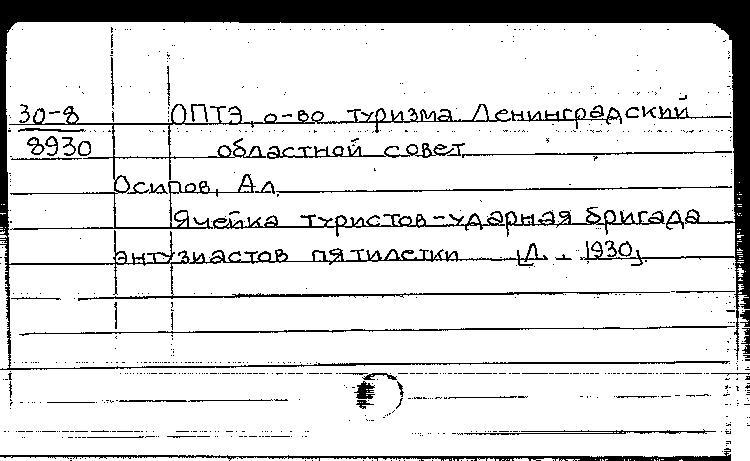 30-8 ОПТЭ, о-во туризма Ленинградский
8930 областной совет
Осипов, Ал.
Ячейка туристов-ударная бригада
энтузиастов пятилетки [Л., 1930]